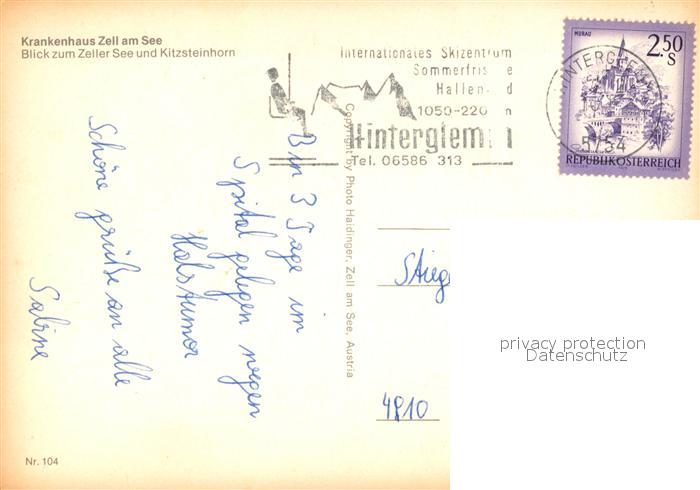 Krankenhaus Zell am See
Blick zum Zeller See und Kitzsteinhorn
Internationales Skizentrum
Sommerfris e
Hallen d
1050-220 n
Hinterglem
Tel. 06586 313
MURAU
2.50
S
HINTERGLEM
5754
REPUBLIK ÖSTERREICH
Bin 3 Tage im
Spital gelegen wegen
Halstumor
Schöne grüße an alle
Sabine
Copyright by Photo Haidinger, Zell am See, Austria
Stieg
4810
privacy protection
Datenschutz
Nr. 104